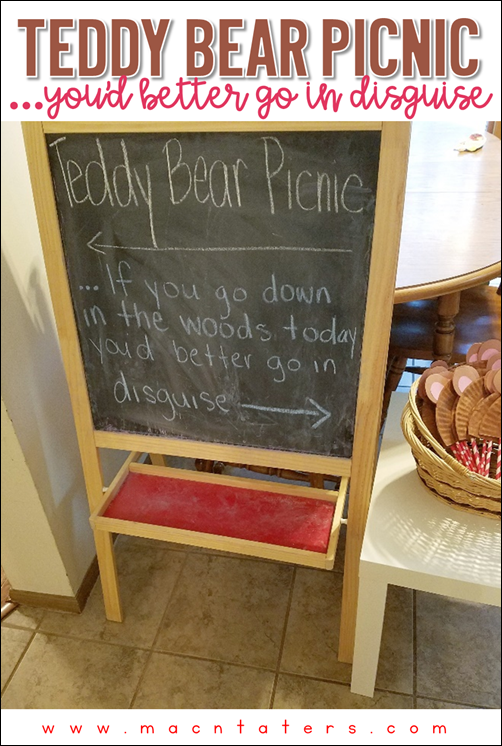 TEDDY BEAR PICNIC
...you'd better go in disguise
Teddy Bear Picnic
... If you go down
in the woods today
you'd better go in
disguise
www.macntaters.com